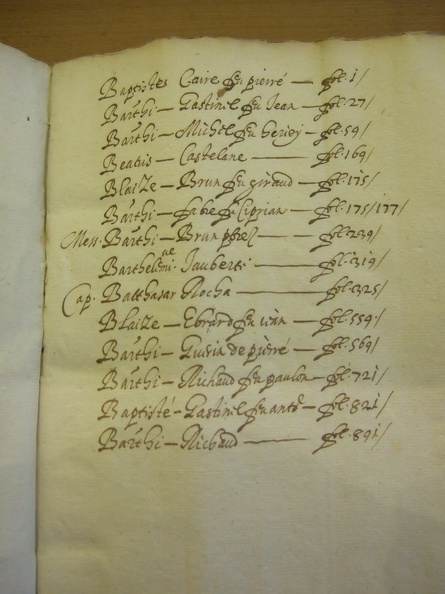 Baptistes Caire feu pierré — fol. 1/
Barthi — Gastinil feu Jean — fol. 27/
Barthi — Michel feu — fol. 59/
Beatris — Castelane — fol. 169/
Blaize — Brun feu giraud — fol. 175/
Barthi — fabre feu Ciprian — fol. 175/177/
Mess. Barthi — Brun — fol. 239/
Barthelemi Jaubert — fol. 319/
Cap. Balthasar Rocha — fol. 325/
Blaize — Ebrard feu — fol. 559/
Barthi — de pierré — fol. 569/
Barthi — Richaud feu paulon — fol. 721/
Baptisté — Gastinil feu antº — fol. 821/
Barthi — Richaud — fol. 891/